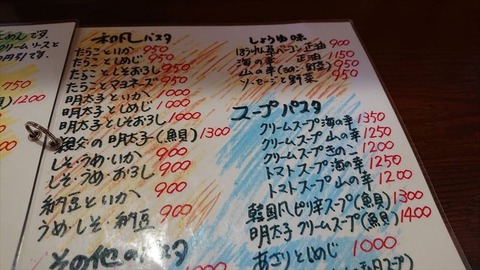 クリームソースと
円引です。
750
和風パスタ
たらこといか 950
たらことしめじ 950
たらことしそおろし 950
たらことマヨネーズ 950
明太子といか 1000
明太子としめじ 1000
明太子としそおろし 1000
の明太子(魚貝) 1300
しそ・うめ・いか 900
しそ・うめ・おろし 900
納豆といか 900
うめ・しそ・納豆 900
その他のパスタ
しょうゆ味
ほうれん草ベーコン 正油 900
海の幸 正油 1150
山の幸(きのこ・野菜) 950
ソーセージと野菜 950
スープパスタ
クリームスープ 海の幸 1350
クリームスープ 山の幸 1250
クリームスープ きのこ 1200
トマトスープ 海の幸 1250
トマトスープ 山の幸 1250
韓国風ピリ辛スープ(魚貝) 1300
明太子クリームスープ(魚貝) 1400
あさりとしめじ 1000